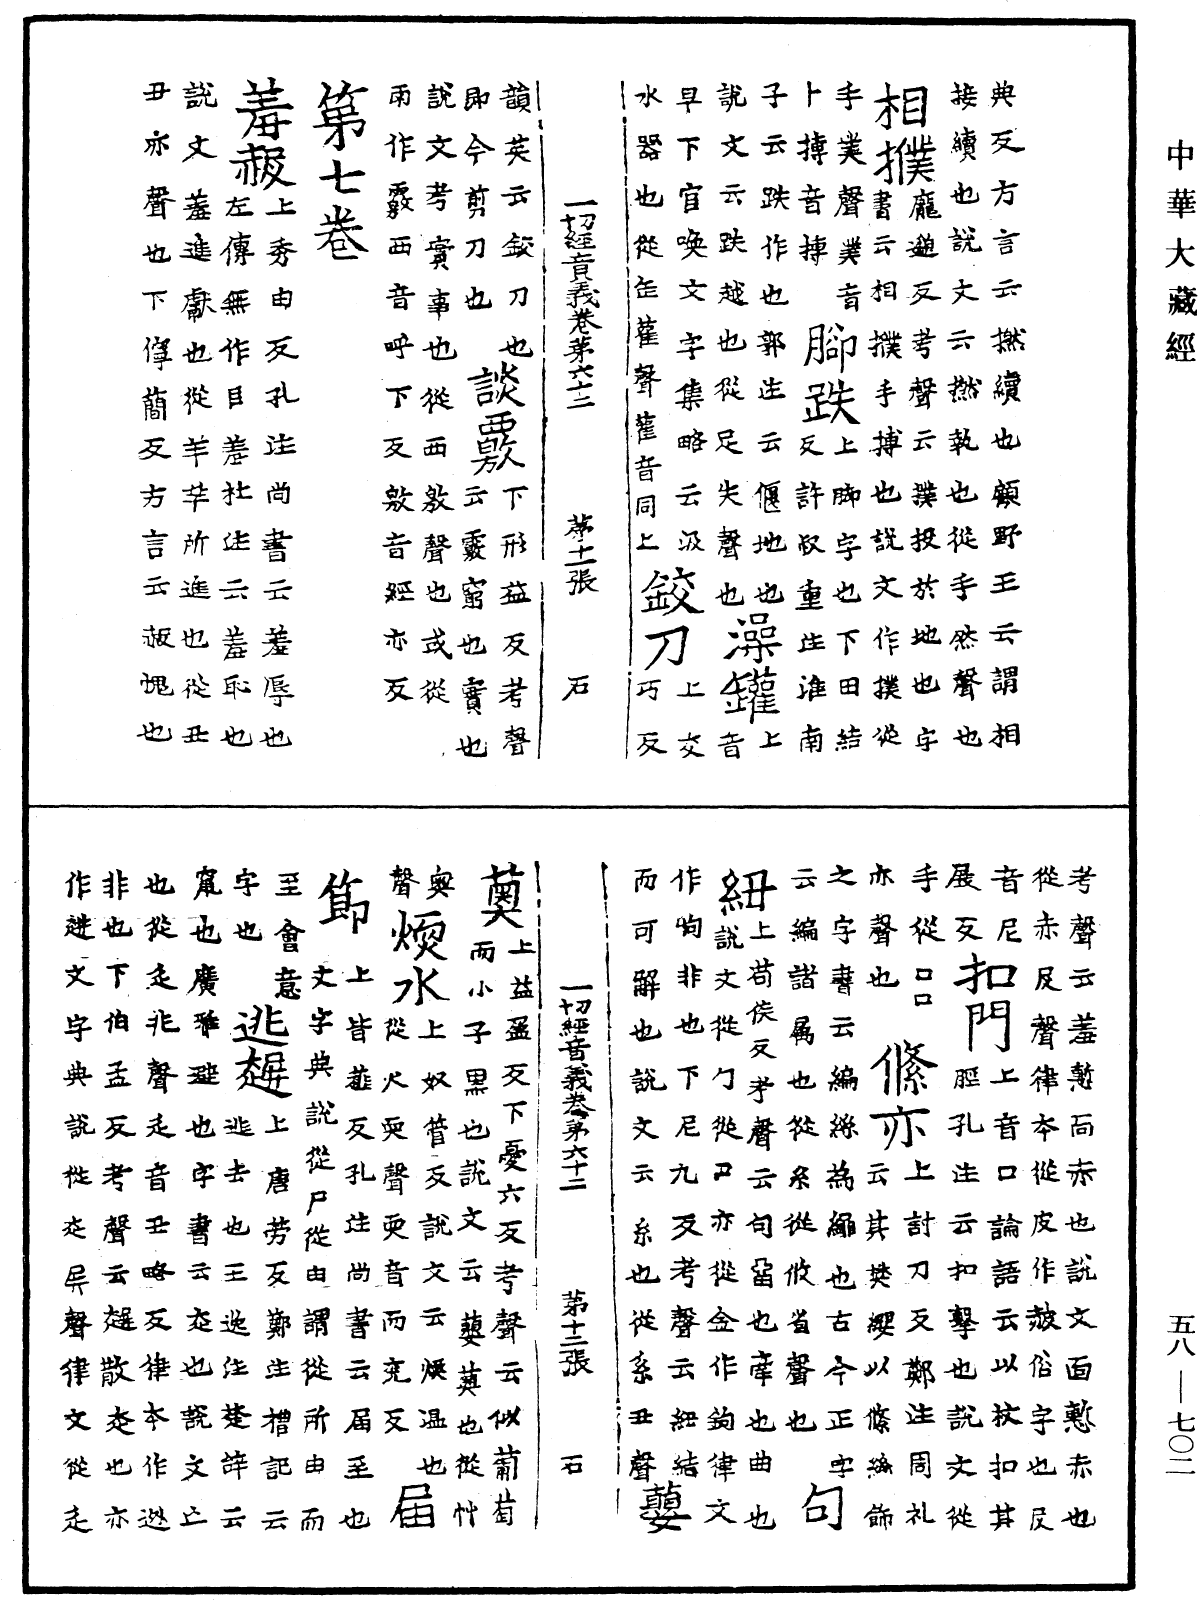 中華大藏經
典反方言云撚續也顧野王云謂相
接續也說文云撚執也從手然聲也
相撲龐邈反考聲云撲投於地也字
書云相撲手搏也說文作撲從
手業聲業音
卜搏音搏
腳跌上腳字也下田結
反許叔重注淮南
子云跌作也郭注云偃地也
說文云跌越也從足失聲也
澡罐上
音
早下官喚文字集略云汲
水器也從缶雚聲雚音同上
鉸刀上交
巧反
一切經音義卷第六十二 第十一張 石
韻英云鉸刀也
即今剪刀也
談覈下形益反考聲
云覈窮也實也
說文考實事也從襾敫聲也或從
雨作覈襾音呼下反敫音經亦反
第七卷
羞赧上秀由反孔注尚書云羞辱也
左傳無作目羞杜注云羞恥也
說文羞進獻也從羊羊所進也從丑
丑亦聲也下㑌簡反方言云赧愧也
考聲云羞慙而赤也說文面慙赤也
從赤𠬝聲律本從皮作赧俗字也𠬝
音尼
展反
扣門上音口論語云以杖扣其
脛孔注云扣擊也說文從
手從口口
亦聲也
絛亦上討刀反鄭注周礼
云其樊纓以絛絲飾
之字書云編絲為繩也古今正字
云編諸屬也從糸從攸省聲也
句
紐上苟侯反考聲云句留也牽也曲也
說文從勹從口亦從金作鉤律文
作昫非也下尼九反考聲云紐結
而可解也說文云糸也從糸丑聲
蘡
一切經音義卷第六十二 第十二張 石
薁上益盈反下憂六反考聲云似葡萄
而小子黑也說文云蘡薁也從艸
奧
聲
煗水上奴管反說文云煗温也
從火耎聲耎音而兖反
届
節上皆薤反孔注尚書云届至也
文字典說從尸從由謂從所由而
至會意
字也
逃趒上唐勞反鄭注禮記云
逃去也王逸注楚辭云
竄也廣雅避也字書云走也說文亡
也從辵兆聲辵音丑略反律本作迯
非也下伯孟反考聲云趒散走也亦
作迸文字典說從走屏聲律文從辵
五八—七〇二